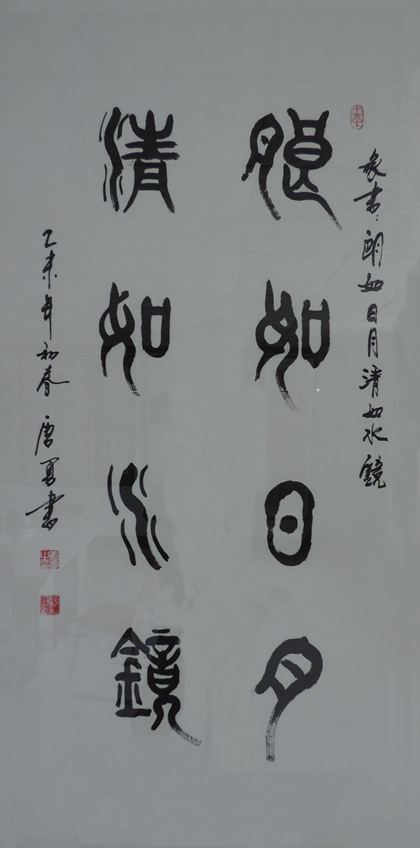 篆书：朗如日月清如水鏡
朗如日月
清如水鏡
乙未年初春 唐 書